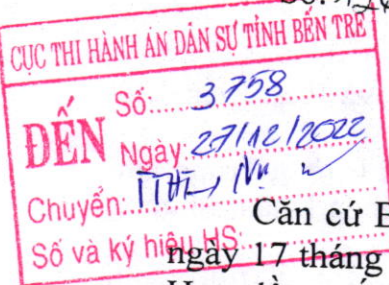 CỤC THI HÀNH ÁN DÂN SỰ TỈNH BẾN TRE
ĐẾN
Số: 3758
Ngày: 27/12/2022
Chuyển:
Số và ký hiệu HS
Căn cứ
ngày 17 tháng